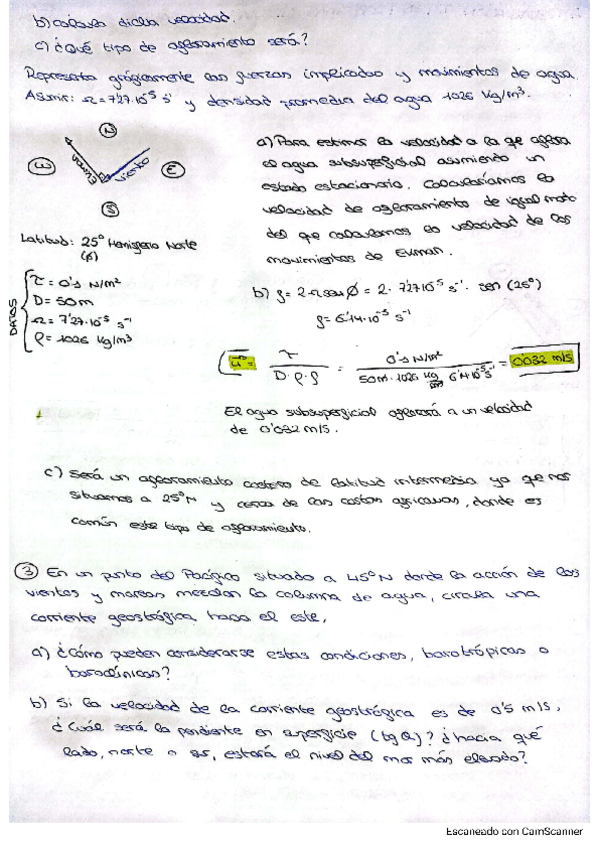 b) calcula dicha velocidad.
c) ¿Qué tipo de afloramiento será?
Representa gráficamente las fuerzas implicadas y movimientos de agua.
Asumir: Ω=7'27·10⁻⁵ s⁻¹ y densidad promedia del agua 1026 Kg/m³.
N
W
E
S
viento
Latitud: 25° Hemisferio Norte
(ϕ)
DATOS
τ = 0'1 N/m²
D = 50m
Ω = 7'27·10⁻⁵ s⁻¹
ρ = 1026 Kg/m³
a) Para estimar la velocidad a la que aflora
el agua subsuperficial asumiendo un
estado estacionario. Calcularíamos la
velocidad de afloramiento de igual modo
del que calculamos la velocidad de los
movimientos de Ekman.
b) f = 2·Ω·sen Ø = 2 · 7'27·10⁻⁵ s⁻¹ · sen (25°)
f = 6'14·10⁻⁵ s⁻¹
u = τ / D·ρ·f = 0'1 N/m² / 50m · 1026 Kg/m³ · 6'14·10⁻⁵ s⁻¹ = 0'032 m/s
El agua subsuperficial aflorará a una velocidad
de 0'032 m/s.
c) Será un afloramiento costero de latitud intermedia ya que nos
situamos a 25°N y cerca de las costas africanas, donde es
común este tipo de afloramiento.
③ En un punto del Pacífico situado a 45°N donde la acción de los
vientos y mareas mezclan la columna de agua, circula una
corriente geostrófica hacia el este,
a) ¿Cómo pueden considerarse estas condiciones, barotrópicas o
baroclínicas?
b) Si la velocidad de la corriente geostrófica es de 0'5 m/s,
¿Cuál será la pendiente en superficie (tg θ)? ¿hacia qué
lado, norte o sur, estará el nivel del mar más elevado?
Escaneado con CamScanner